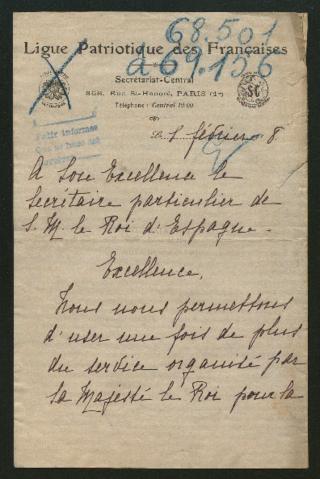 68.501
a 69.156
Ligue Patriotique des Françaises
Secrétariat-Central
368, Rue St-Honoré, PARIS (1er)
Téléphone : Central 19-00
Pedir informes
Le 1 février 8
A Son Excellence le
Secrétaire particulier de
S. M. le Roi d'Espagne.
Excellence,
Nous nous permettons
d'user une fois de plus
du service organisé par
Sa Majesté le Roi pour la